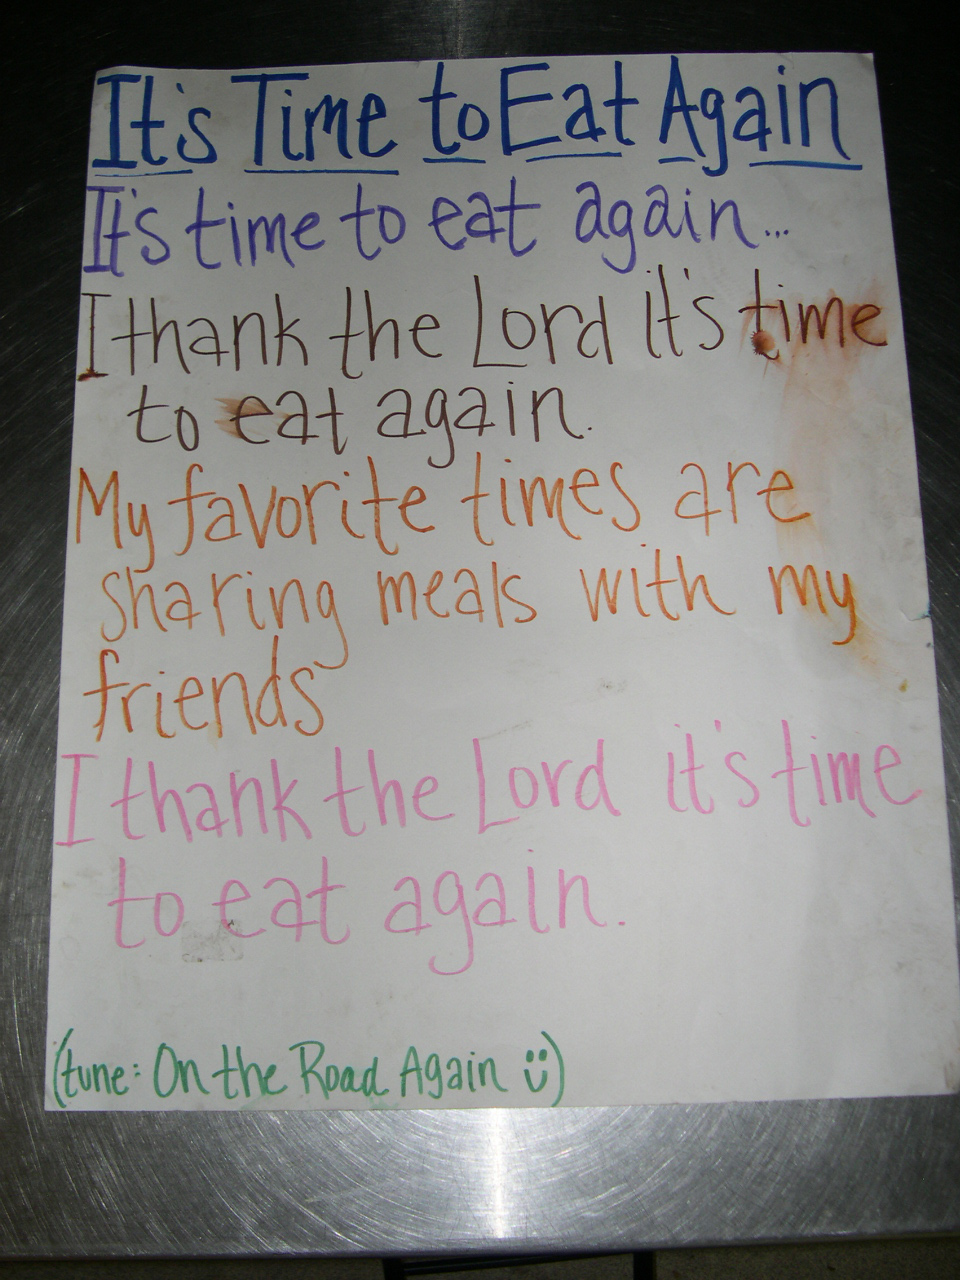 It's Time to Eat Again
It's time to eat again...
I thank the Lord it's time
to eat again.
My favorite times are
sharing meals with my
friends
I thank the Lord it's time
to eat again.
(tune: On the Road Again ü)